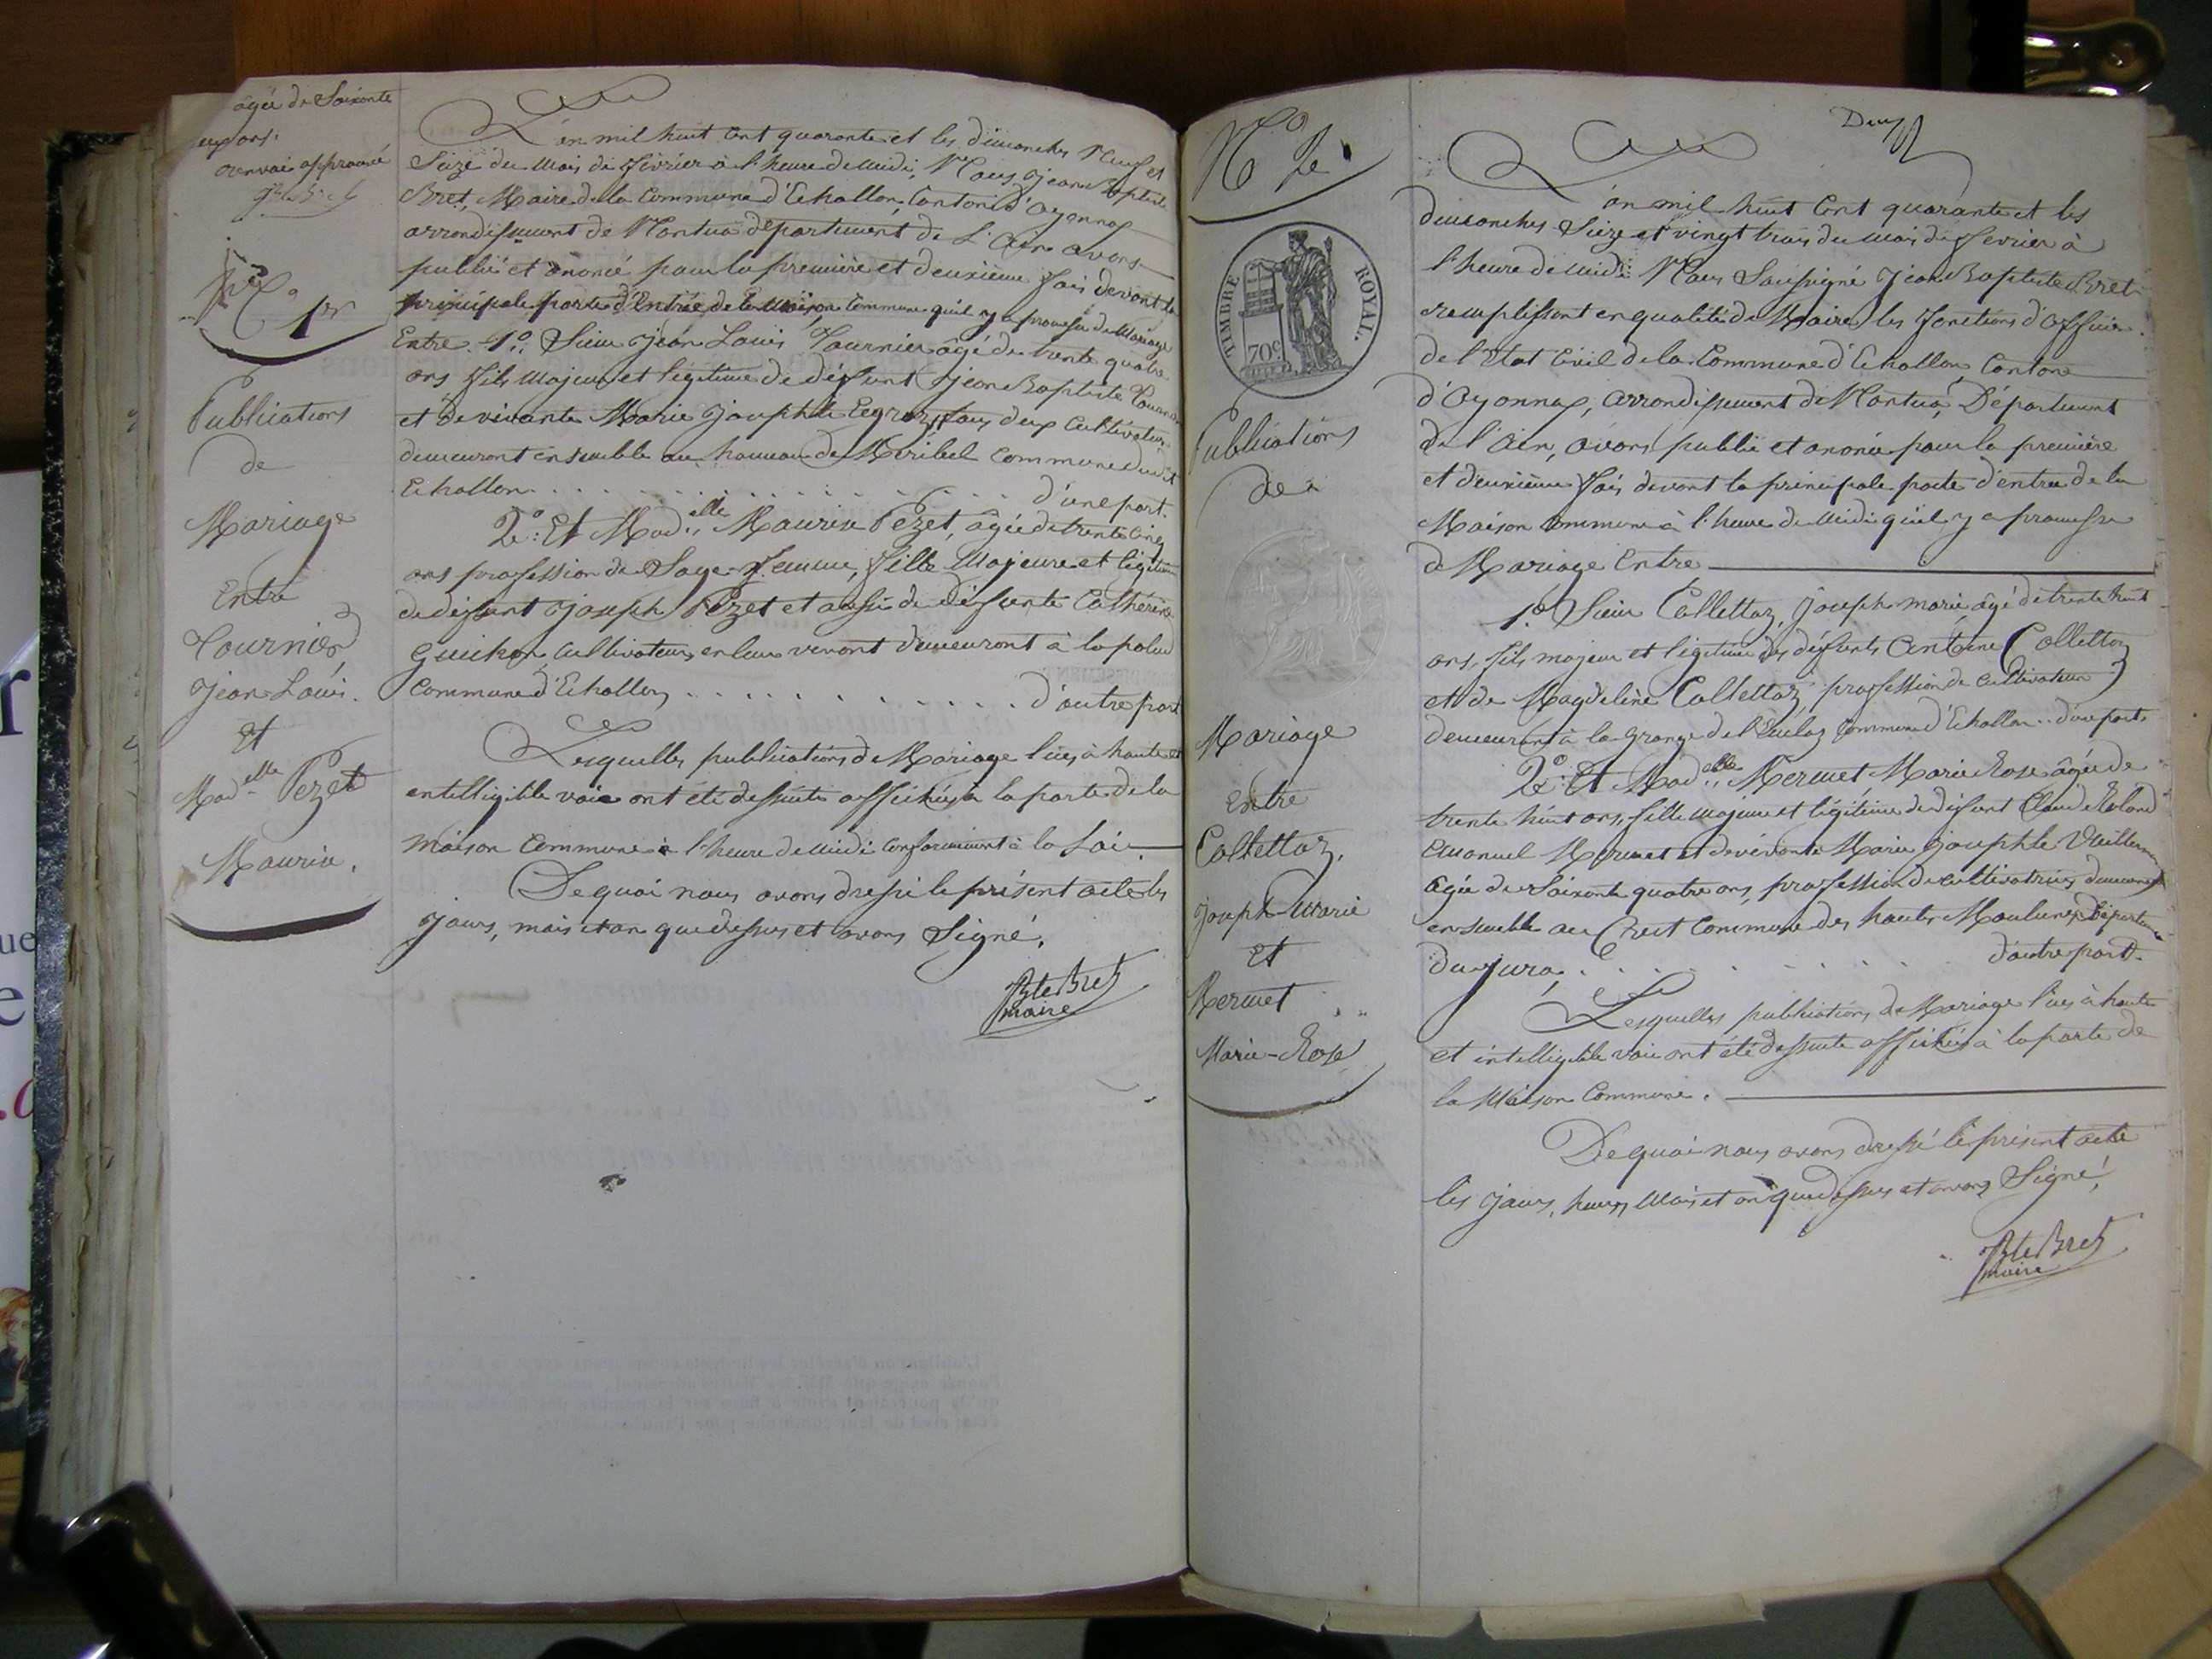 âgée de Soixante
ans.
renvoi approuvé
N.o 1er
Publications
de
Mariage
Entre
Tournier
Jean-Louis.
Et
Mad.elle Pezet
Maurise.
L'an mil huit Cent quarante et les dimanches Neuf et
Seize du Mois de février à l'heure de Midi, Nous Jean Baptiste
Bret, Maire de la Commune d'Echallon, Canton d'Oyonnax
arrondissement de Nantua département de L'Ain avons
publié et anoncé pour la première et deuxième fois devant la
principale porte d'Entrée de la Maison Commune qu'il y a promesse de Mariage
Entre 1.o Sieur Jean Louis Tournier âgé de trente quatre
ans fils majeur et légitime de défunt Jean Baptiste Tournier
et de vivante Marie Josephte Legroz, tous deux Cultivateurs
demeurant ensemble au hameau de Miribel Commune dudit
Echallon . . . . . . . . d'une part.
2.o Et Mad.elle Maurise Pezet, âgée de trente cinq
ans profession de Sage-femme, fille Majeure et légitime
de défunt Joseph Pezet et aussi de défunte Cathérine
Guichon Cultivateurs en leur vivant demeurant à lapalud
Commune d'Echallon . . . . . . . . d'autre part
Lesquelles publications de Mariage lues à haute et
entelligible voie ont été dessuite affichées à la porte de la
maison Commune à l'heure de Midi conformément à la Loi.
De quoi nous avons dressé le présent acte les
jours, mois et an que dessus et avons Signé.
Bte Bret
maire
Deux
N.o 2e
TIMBRE ROYAL.
70c
Publications
de
Mariage
Entre
Collettaz,
Joseph-Marie
Et
Mermet
Marie-Rose
L'an mil huit Cent quarante et les
dimanches Seize et vingt trois du mois de fevrier à
l'heure de Midi Nous Soussigné Jean Baptiste Bret
remplissant en qualité de Maire les fonctions d'officier
de l'Etat Civil de la Commune d'Echallon Canton
d'Oyonnax, arrondissement de Nantua, Département
de l'Ain, avons publié et anoncé pour la première
et deuxième fois devant la principale porte d'entrée de la
Maison Commune à l'heure de Midi qu'il y a promesse
de Mariage Entre
1.o Sieur Collettaz, Joseph marie, âgé de trente huit
ans, fils majeur et légitime des défunts Antoine Collettaz
et de Magdeleine Collettaz profession de Cultivateur
demeurant à la Grange de l'Eculaz Commune d'Echallon . . d'une part
2.o Et Mad.elle Mermet, Marie Rose âgée de
trente huit ans, fille majeure et légitime de défunt Claude Roland
Emanuel Mermet et de vivante Marie Josephte Vuillermoz
âgée de Soixante quatre ans, profession de cultivatrices demeurant
ensemble au Crest Commune des hautes Moulunes Département
du Jura, . . . . . . . . d'autre part.
Lesquelles publications de Mariage lues à haute
et intelligible voie ont été dessuite affichées à la porte de
la Maison Commune.
De quoi nous avons dressé le présent acte
les jours, heure, Mois et an que dessus et avons Signé,
Bte Bret
maire